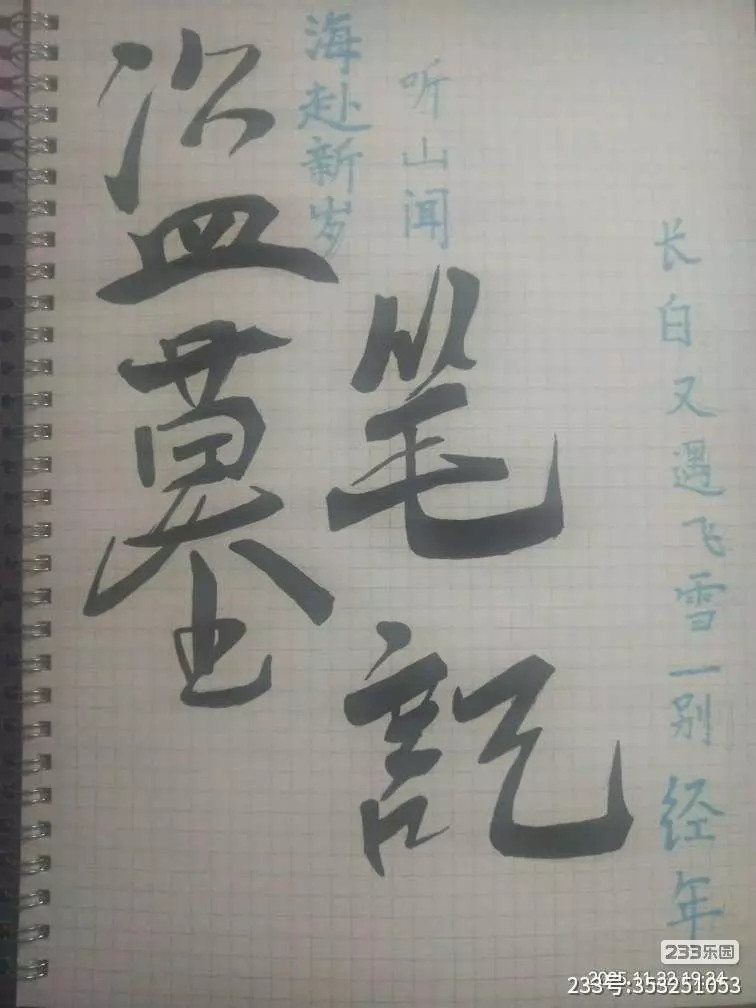 盗墓
笔記
听山闻
海赴新岁
长白又遇飞雪一别经年
233乐园
2025.11.22 19:24
233号:353251053